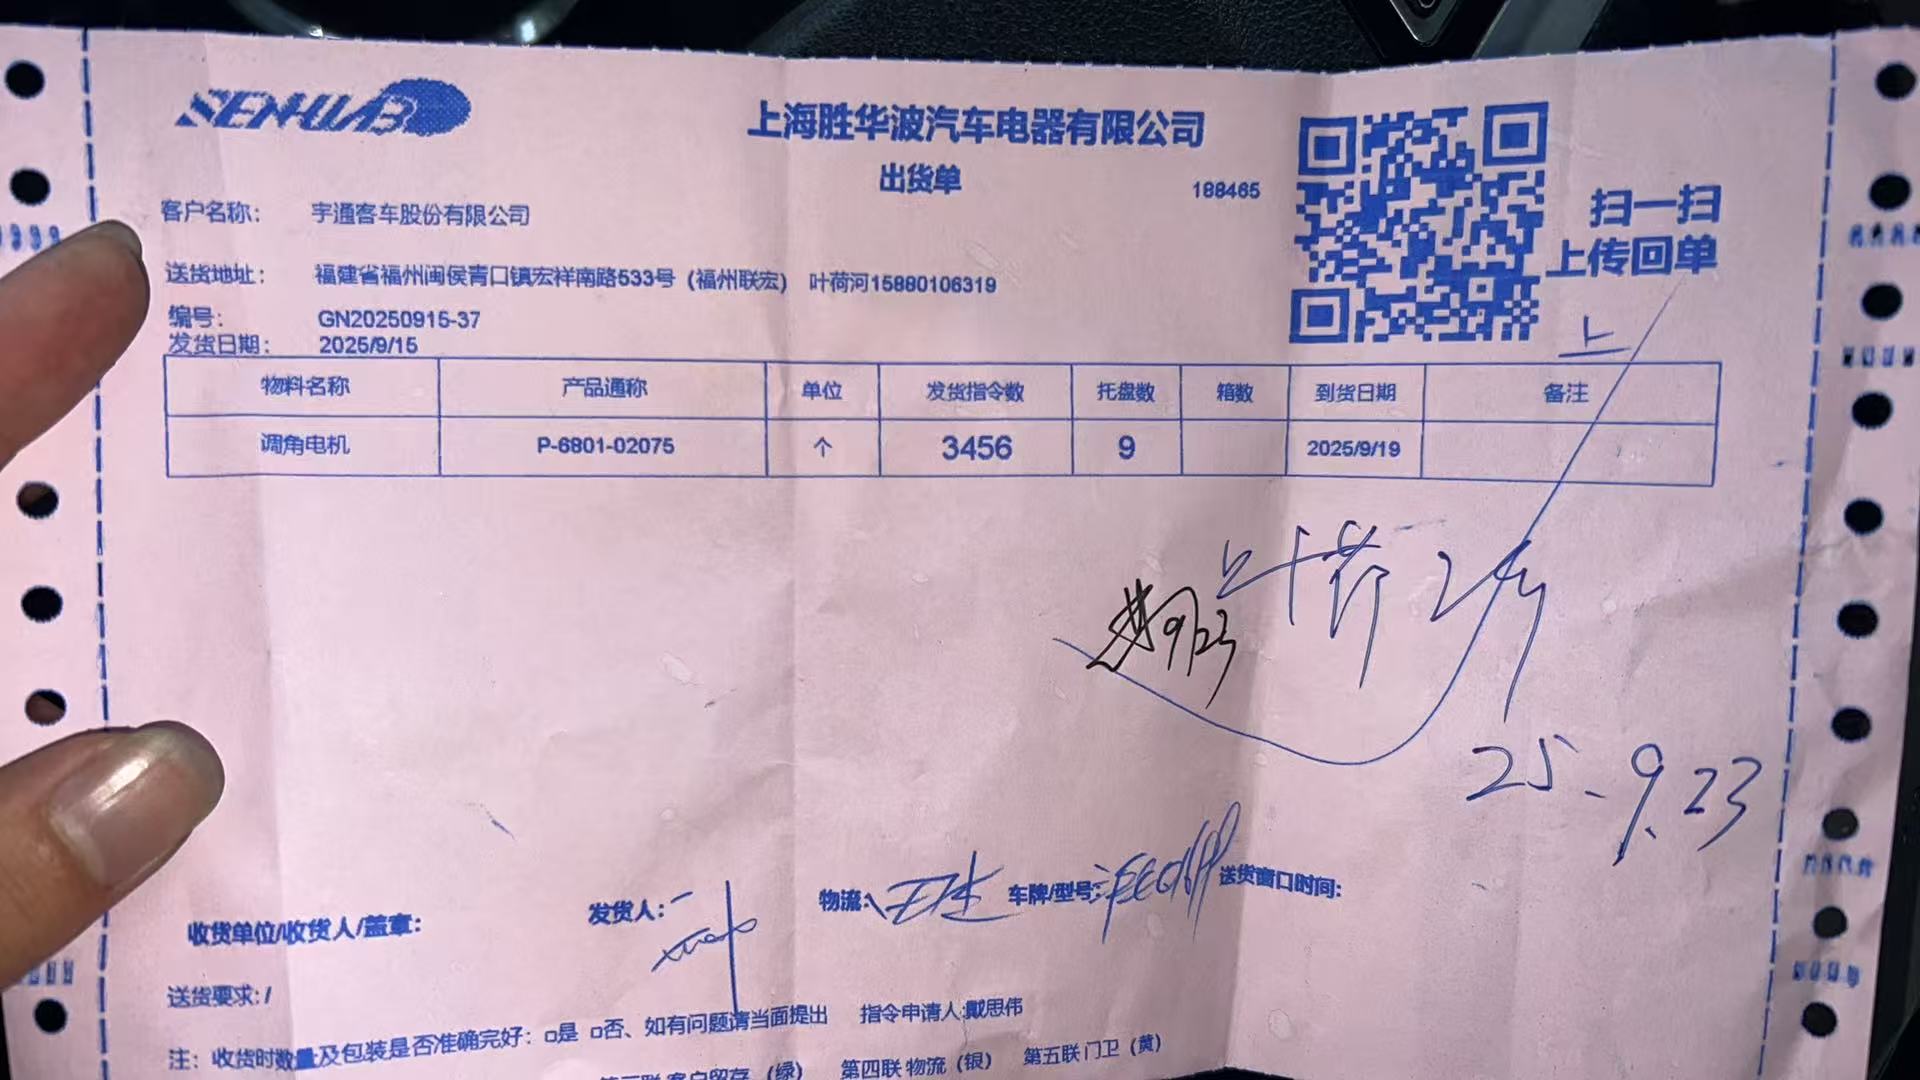 SENHUAB
上海胜华波汽车电器有限公司
出货单
188465
扫一扫
上传回单
客户名称: 宇通客车股份有限公司
送货地址: 福建省福州闽侯青口镇宏祥南路533号（福州联宏） 叶荷河15880106319
编号: GN20250915-37
发货日期: 2025/9/15
物料名称 产品通称 单位 发货指令数 托盘数 箱数 到货日期 备注
调角电机 P-6801-02075 个 3456 9 2025/9/19
叶荷
9/23
25-9.23
收货单位/收货人/盖章: 发货人: 物流: 车牌/型号: 送货窗口时间:
送货要求: /
注: 收货时数量及包装是否准确完好: □是 □否、如有问题请当面提出 指令申请人:戴思伟
客户留存（绿） 第四联 物流（银） 第五联 门卫（黄）